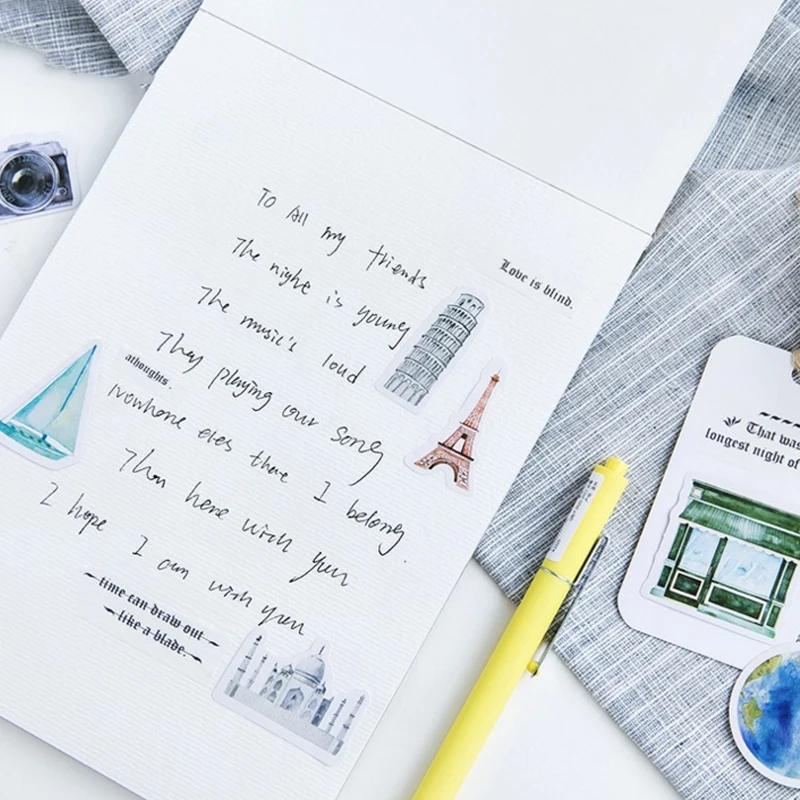 To All my friends
Love is blind.
The night is young
The music's loud
They playing our song
athoughts.
Nowhere eles there I belong.
Than here with you
I hope I am with you
time can draw out
like a blade.
That was
longest night of